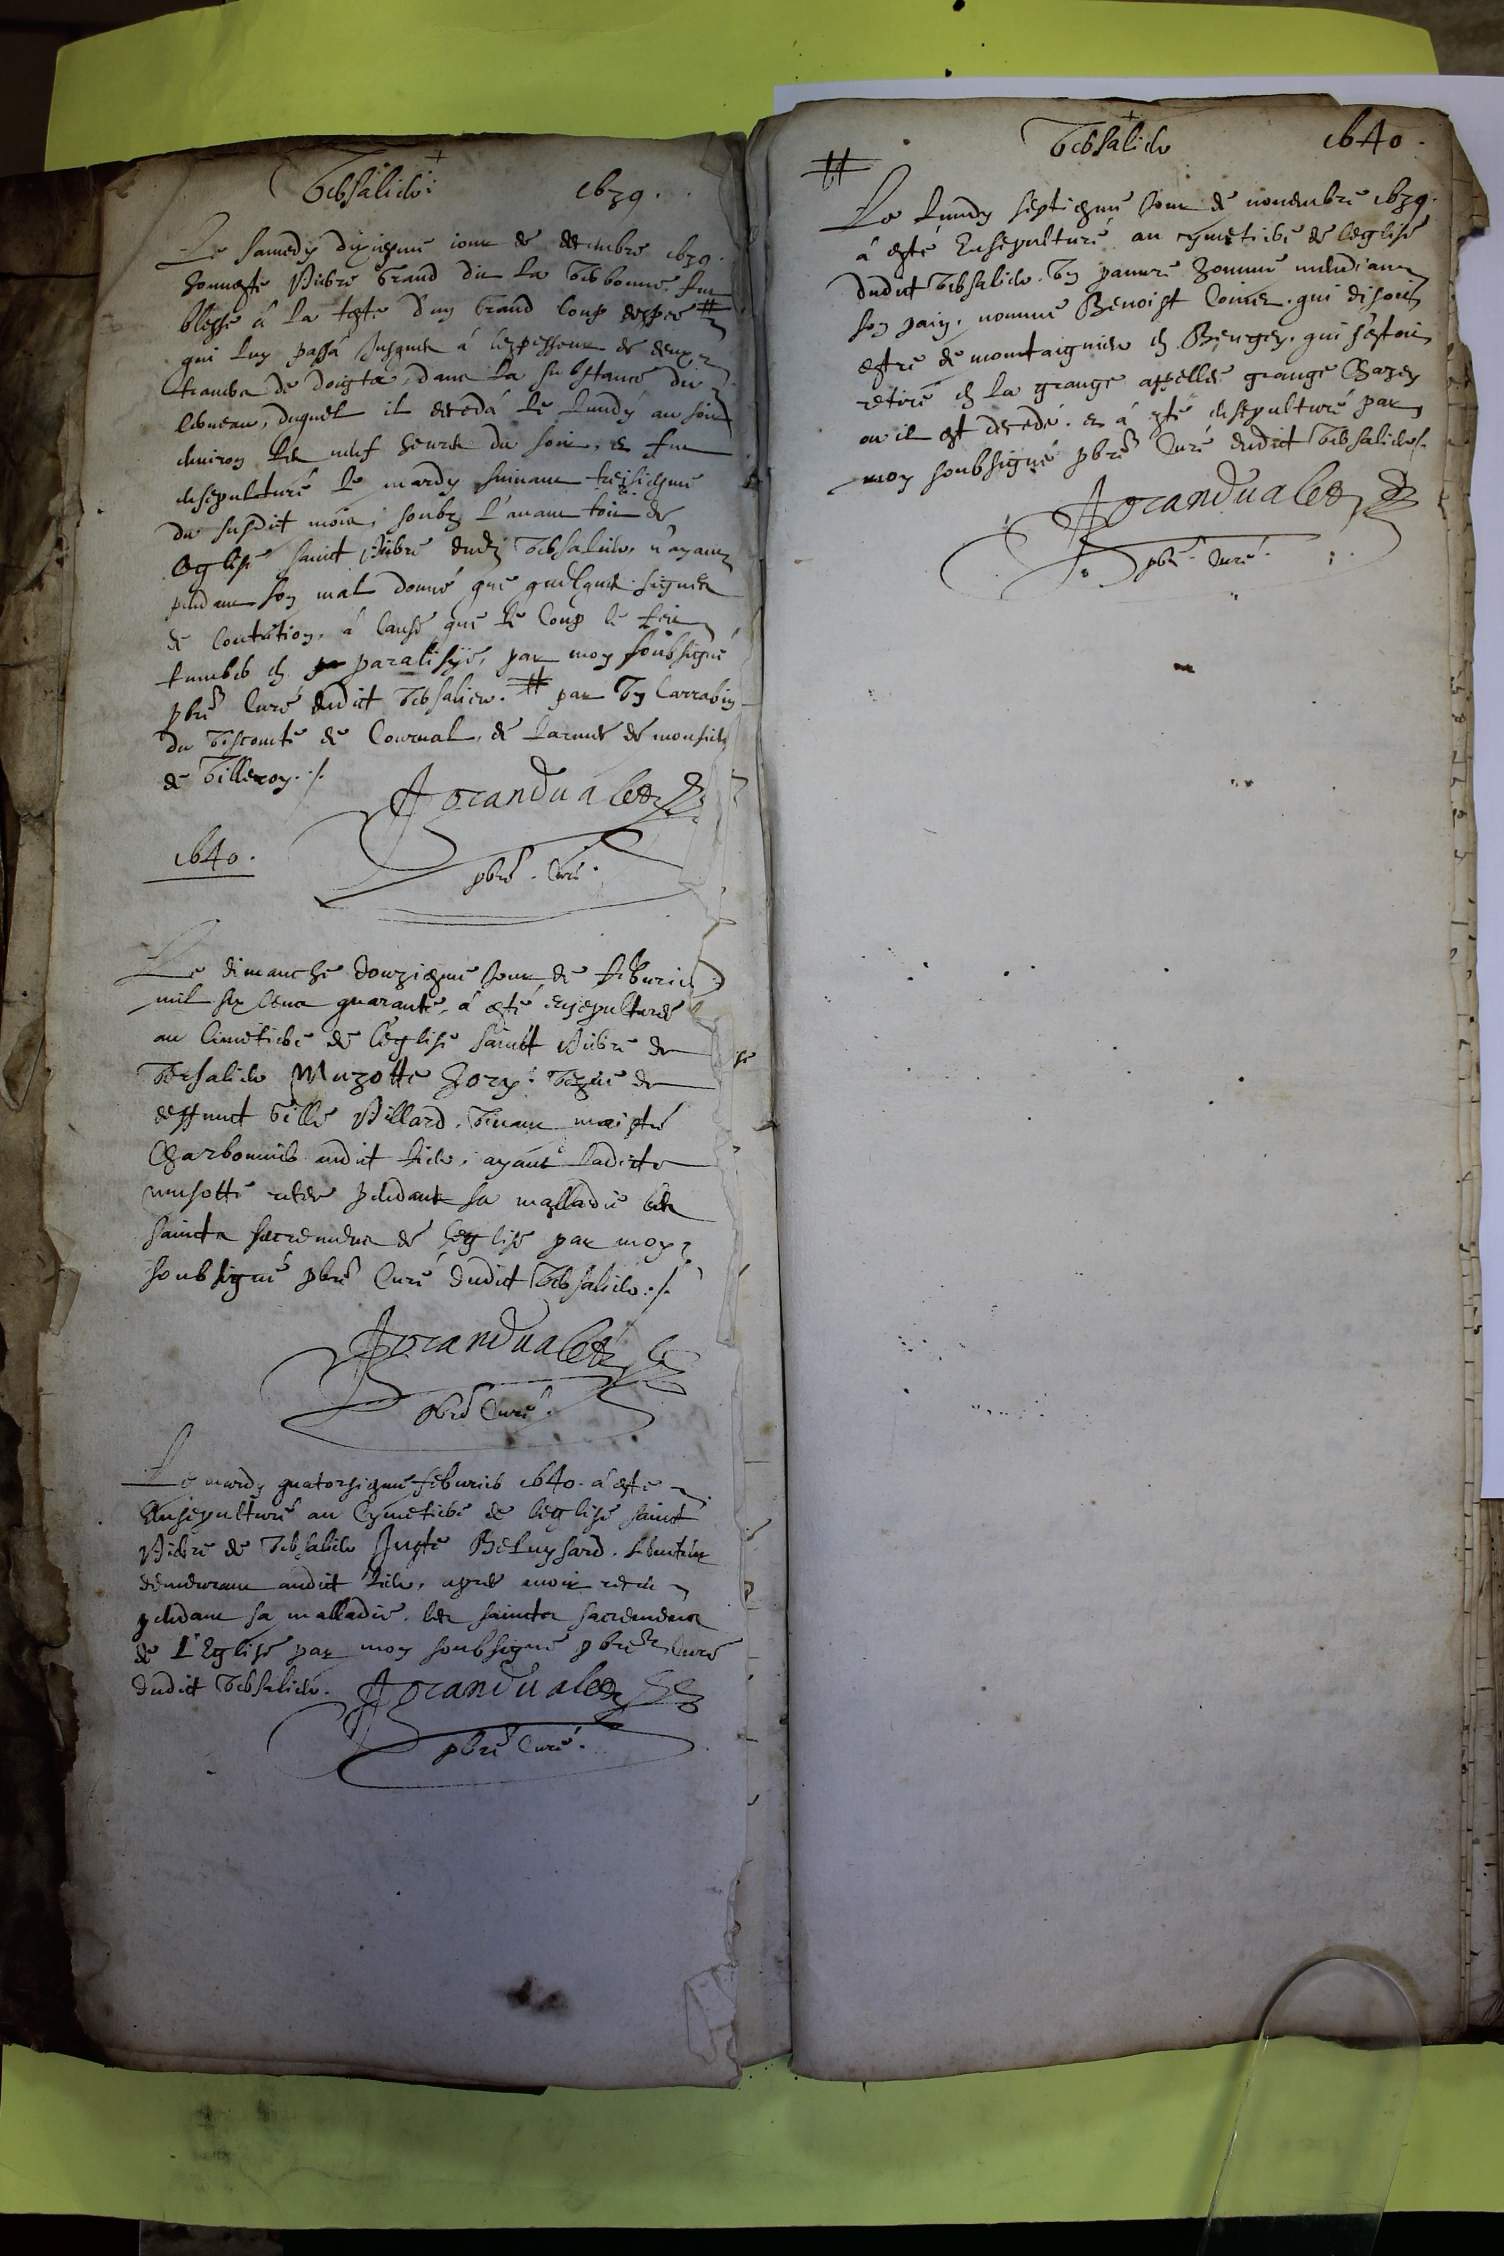 Versalieu. 1639.
Le samedy dixiesme iour de decembre 1639.
honneste Pierre Grand dit la Verbonne fut
blessé â la teste d'un Grand coup despée #
qui luy passâ jusques â l'espesseur de deux
trauers de doigts, dans la substance du
cerueau, duquel il decedâ le lundy au soir
enuiron les neuf heures du soir, et fut
ensepulturé le mardy suiuant treisiesme
du susdit mois, soubz l'auant toict de
leglise sainct Pierre dudit Versalieu, n'ayant
pendant son mal donné que quelques signes
de contrition, â cause que le coup le feit
tumber en paralisye, par moy soubsigné
pbre Curé dudict Versalieu. # par Un Carrabin
du Viscomte de Courual, de larmée de monsieur
de Villeroy ./.
Grandualet
pbre Curé.
1640.
Le dimanche douziesme Jour de feburier
mil six cens quarante, â esté ensepulturée
au Cimetiere de l'eglise sainct Pierre de
Versalieu Muzotte Jory: vefue de
deffunct Gille Villard. Viuant maistre
Charbonnier audict lieu, ayant ladicte
musotte receu pendant sa malladie les
saincts sacremens de leglise par moy
soubsigné pbre Curé dudict Versalieu ./.
Grandualet
pbre Curé.
Le mardy quatorsiesme feburier 1640. â esté
Ensepulturé au Cymetiere de leglise sainct
Pierre de Versalieu Juste Beluysard.
demeurant audict lieu, apres auoir receu
pendant sa malladie, les saincts sacremens
de L'Eglise par moy soubsigné pbre Curé
dudict Versalieu. Grandualet
pbre Curé.
Versalieu 1640.
#
Le lundy septiesme Jour de nouembre 1639.
â esté Ensepulturé au cymetiere de leglise
dudict Versalieu. Un pauure homme mendiant
son pain, nommé Benoist qui disoit
estre de montaignieu en Beugey, qui s'estoit
retiré en la grange appellée grange Chazey
ou il est decedé. et â esté ensepulturé par
moy soubsigné pbre Curé dudict Versalieu ./.
Grandualet
pbre Curé.